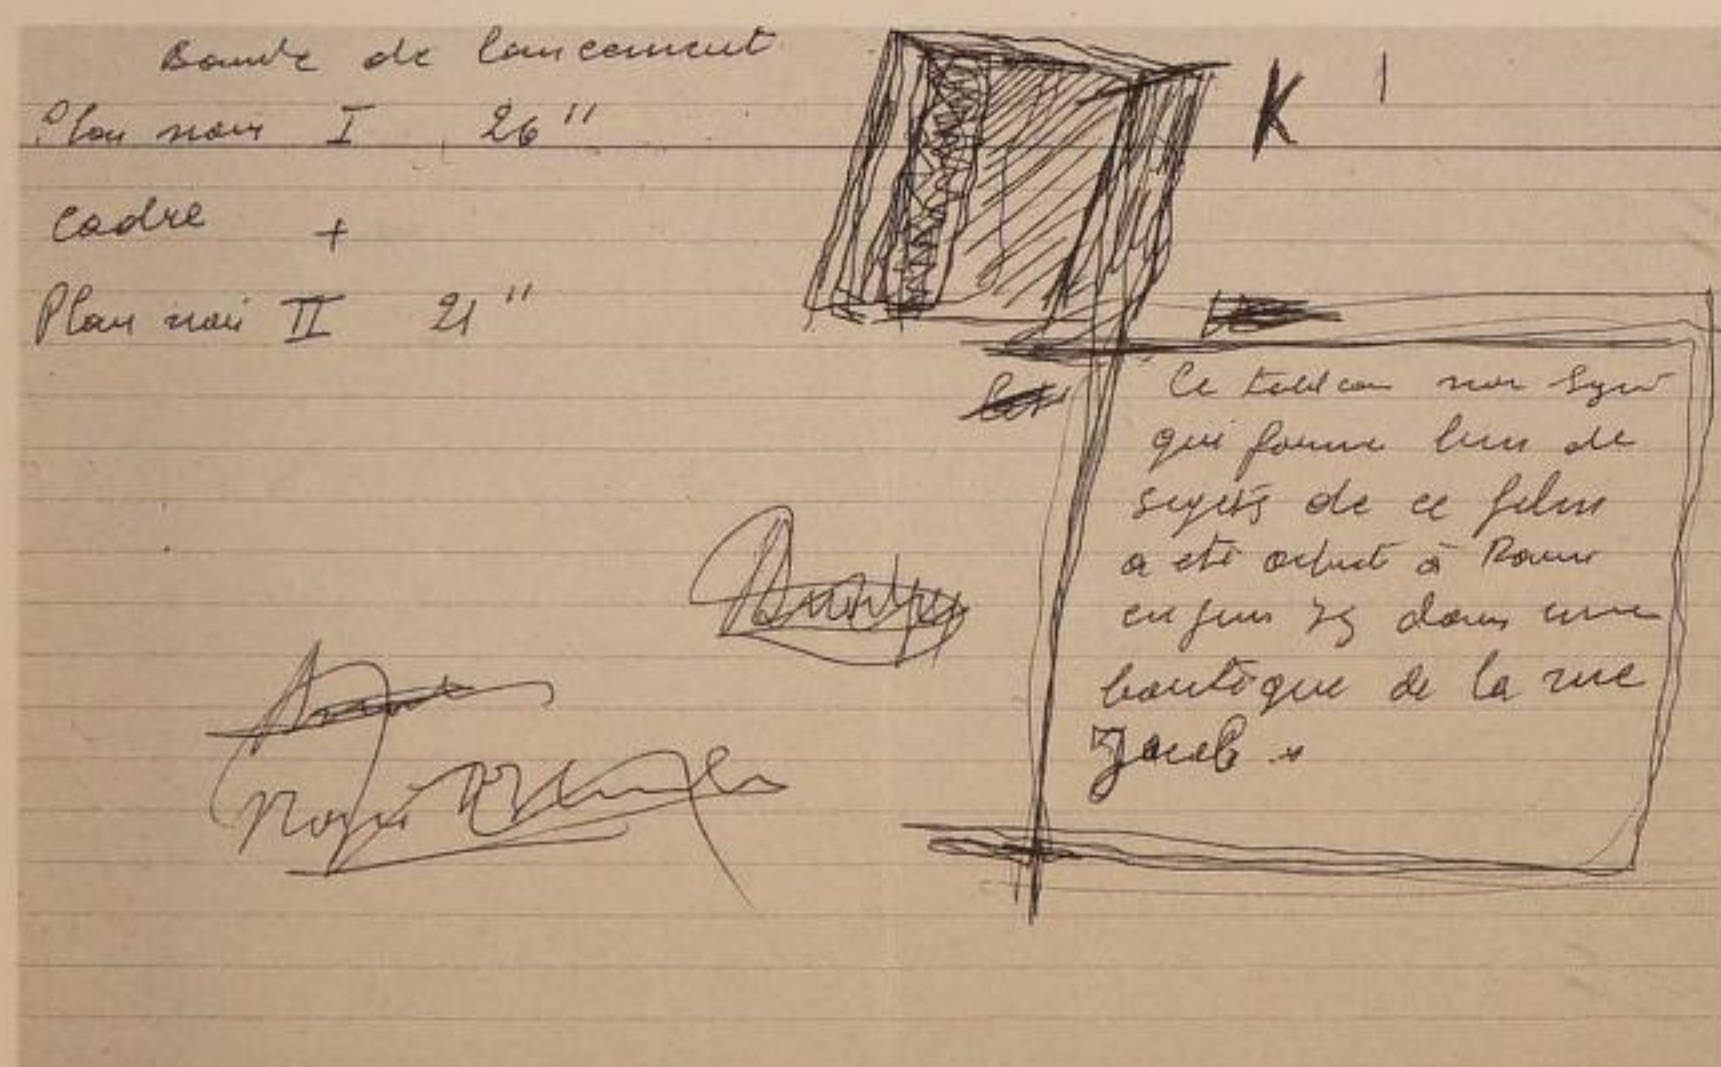 Bande de lancement
Plan noir I 26"
K
Cadre +
Plan noir II 21"
Ce tableau non signé
qui forme l'un de
sujets de ce film
a été acheté à Rome
en juin dans une
boutique de la rue
Jacob